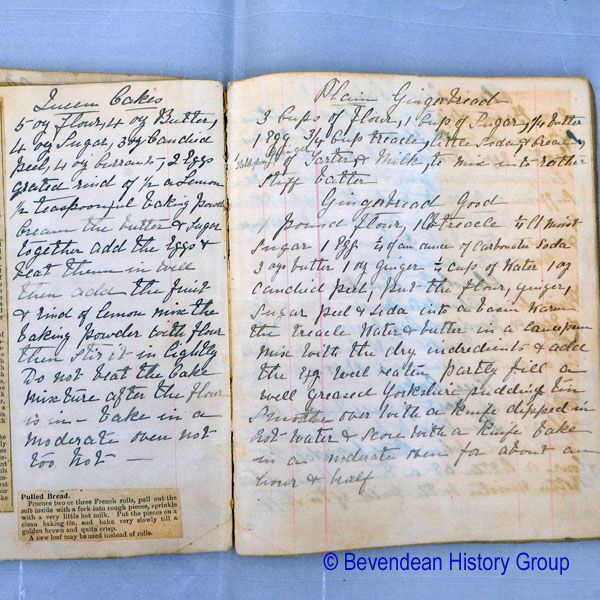 Queen Cakes
5 oz flour, 4 oz Butter,
4 oz Sugar, 3 oz Candied
peel, 4 oz Currants, 2 Eggs
grated rind of ½ a Lemon
½ teaspoonful baking powder
Cream the butter & sugar
together add the Eggs &
beat them in well
then add the fruit
& rind of lemon mix the
baking powder with flour
then stir it in lightly
Do not beat the cake
mixture after the flour
is in - bake in a
moderate oven not
too hot —
Pulled Bread.
Procure two or three French rolls, pull out the
soft inside with a fork into rough pieces, sprinkle
with a very little hot milk. Put the pieces on a
clean baking-tin, and bake very slowly till a
golden brown and quite crisp.
A new loaf may be used instead of rolls.
Plain Gingerbread
3 Cups of Flour, 1 Cup of Sugar, ¼ butter
1 Egg ¾ Cup treacle, little Soda & Cream
of Tarter & Milk, to mix into rather
Stiff batter
Gingerbread Good
1 pound flour, 1 lb treacle ½ lb moist
Sugar 1 Egg of an ounce of Carbonate Soda
3 ozs butter 1 oz Ginger cup of Water 1 oz
Candied peel, Put the flour, ginger,
Sugar peel & Soda into a basin Warm
the treacle Water & butter in a saucepan
Mix with the dry ingredients & add
the Egg well beaten partly fill a
well greased Yorkshire pudding tin
Smooth over with a knife dipped in
hot water & score with a knife bake
in a moderate oven for about an
hour & half
© Bevendean History Group